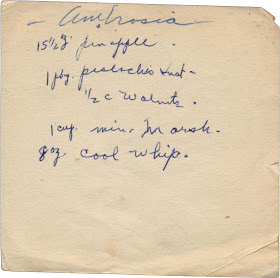 - Ambrosia -
15 1/2 oz pineapple.
1 pkg. pistachio Inst.
1/2 c Walnuts.
1 cup. min. Marsh.
8 oz. cool whip.